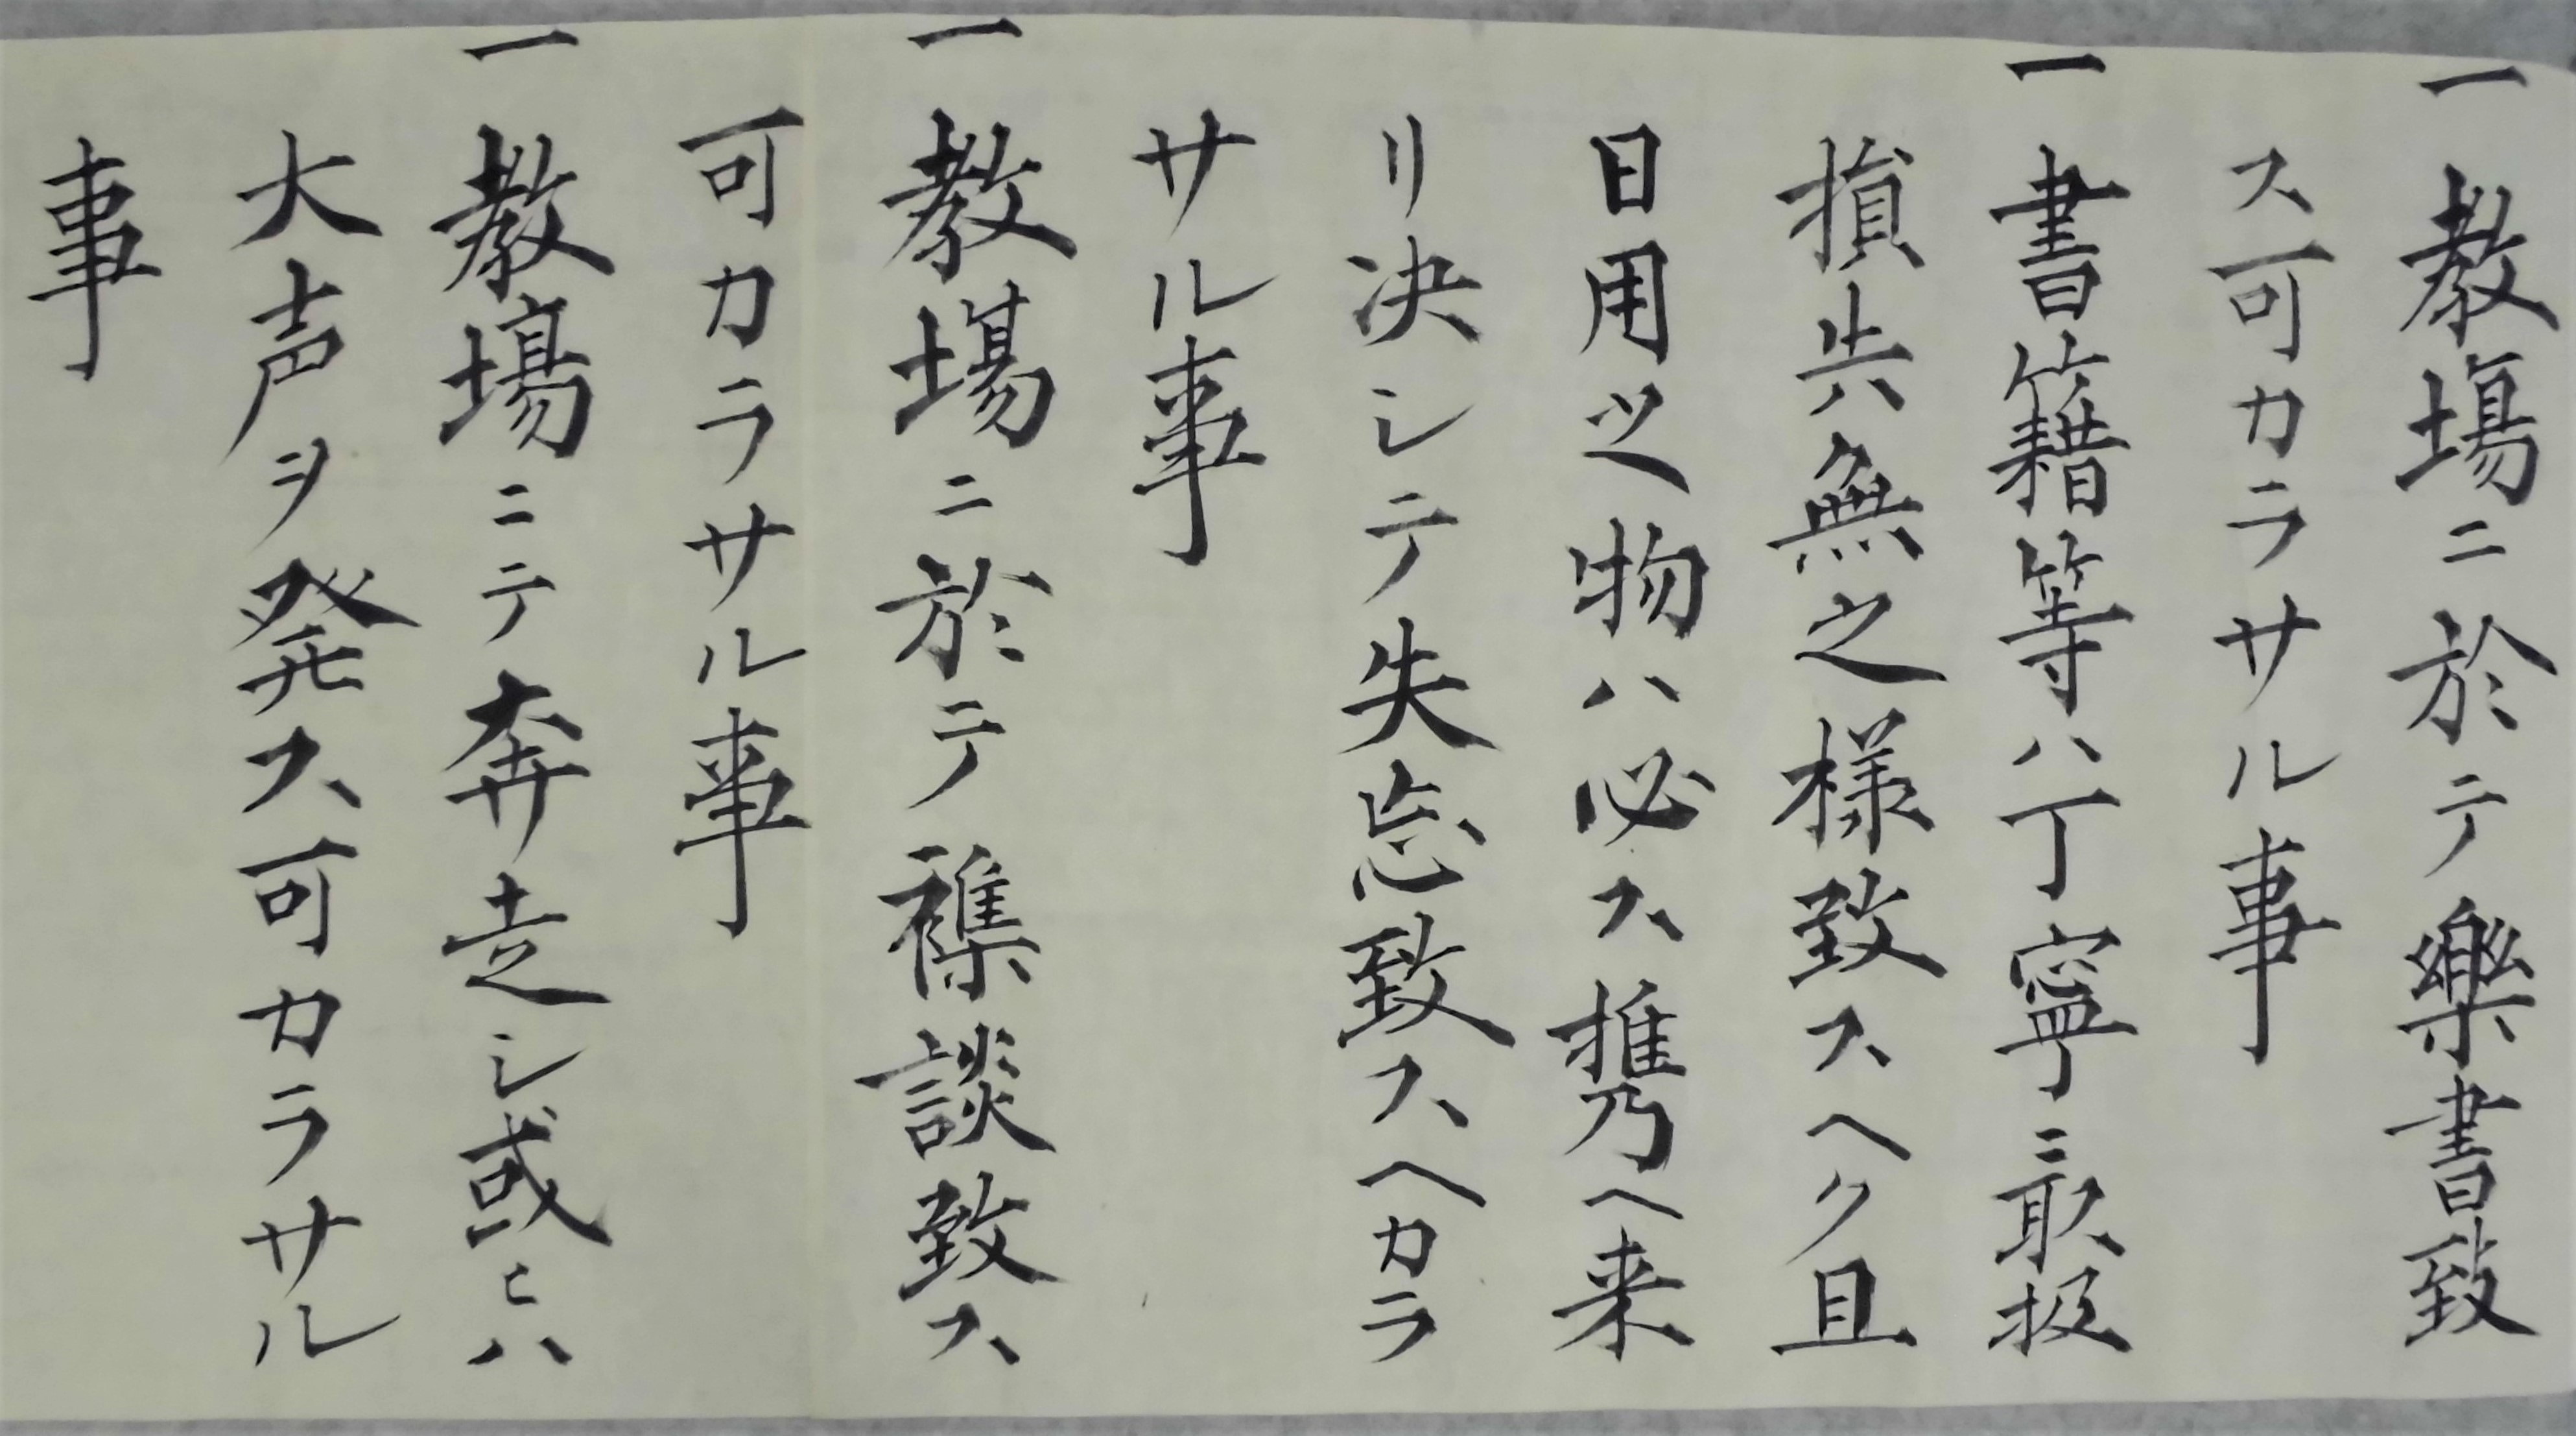 一教場ニ於テ樂書致
ス可カラサル事
一書籍等ハ丁寧ニ取扱
損失無之様致スヘク且
日用之物ハ必ス携ヘ来
リ決シテ失忘致スヘカラ
サル事
一教場ニ於テ襍談致ス
可カラサル事
一教場ニテ奔走シ或ヒハ
大声ヲ発ス可カラサル
事